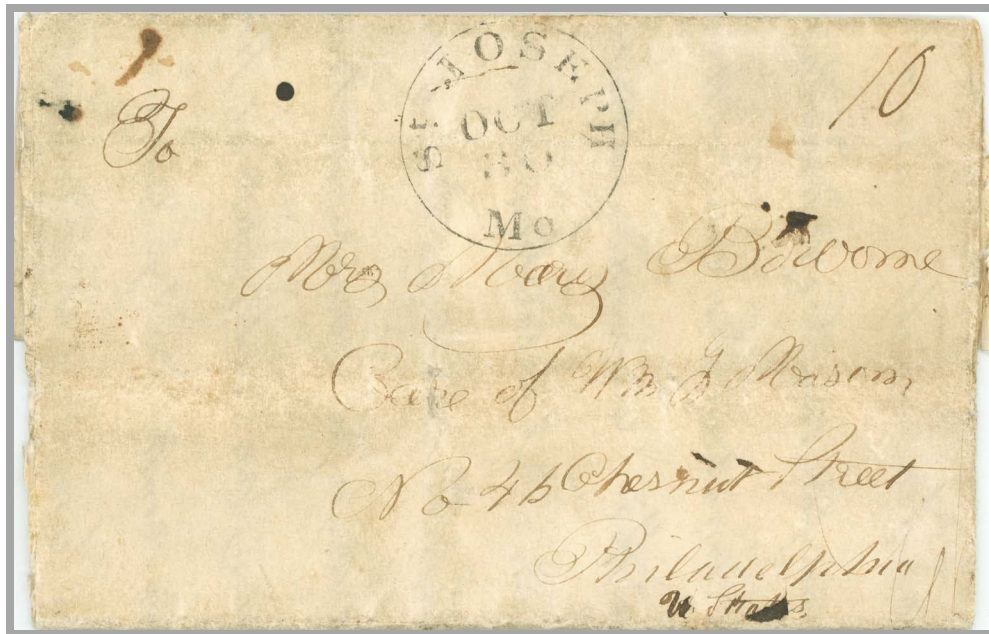 10
St. JOSEPH
OCT
30
Mo
To
Mrs Mary
Care of Wm G Mason
No 46 Chesnut Street
Philadelphia
U. States